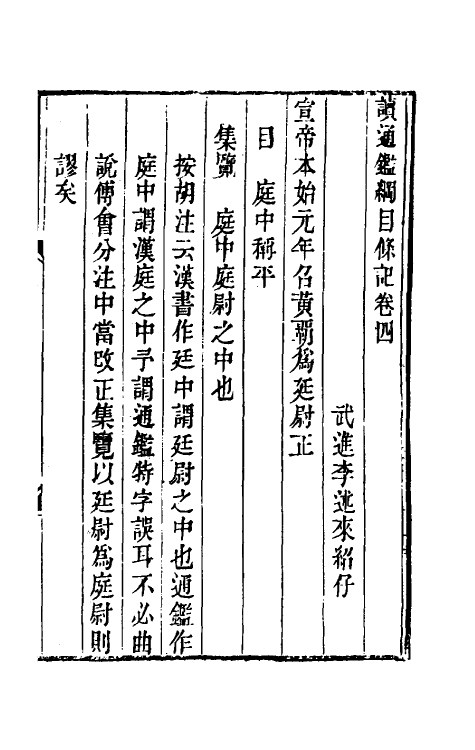 讀通鑑綱目條記卷四
武進李述來紹仔
宣帝本始元年召黃霸爲廷尉正
目　庭中稱平
集覽　庭中庭尉之中也
按胡注云漢書作廷中謂廷尉之中也通鑑作
庭中謂漢庭之中予謂通鑑特字誤耳不必曲
說傅會分注中當改正集覽以廷尉爲庭尉則
謬矣